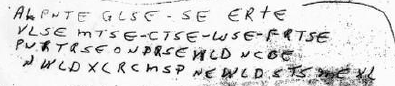 ALPNTE GLSE-SE ERTE
VLSE MTSE-CTSE-WSE-FRTSE
PNRTRSEONDRSEWLD NCBE
NWLDXLRCMSP NEWLDSTS ME XL